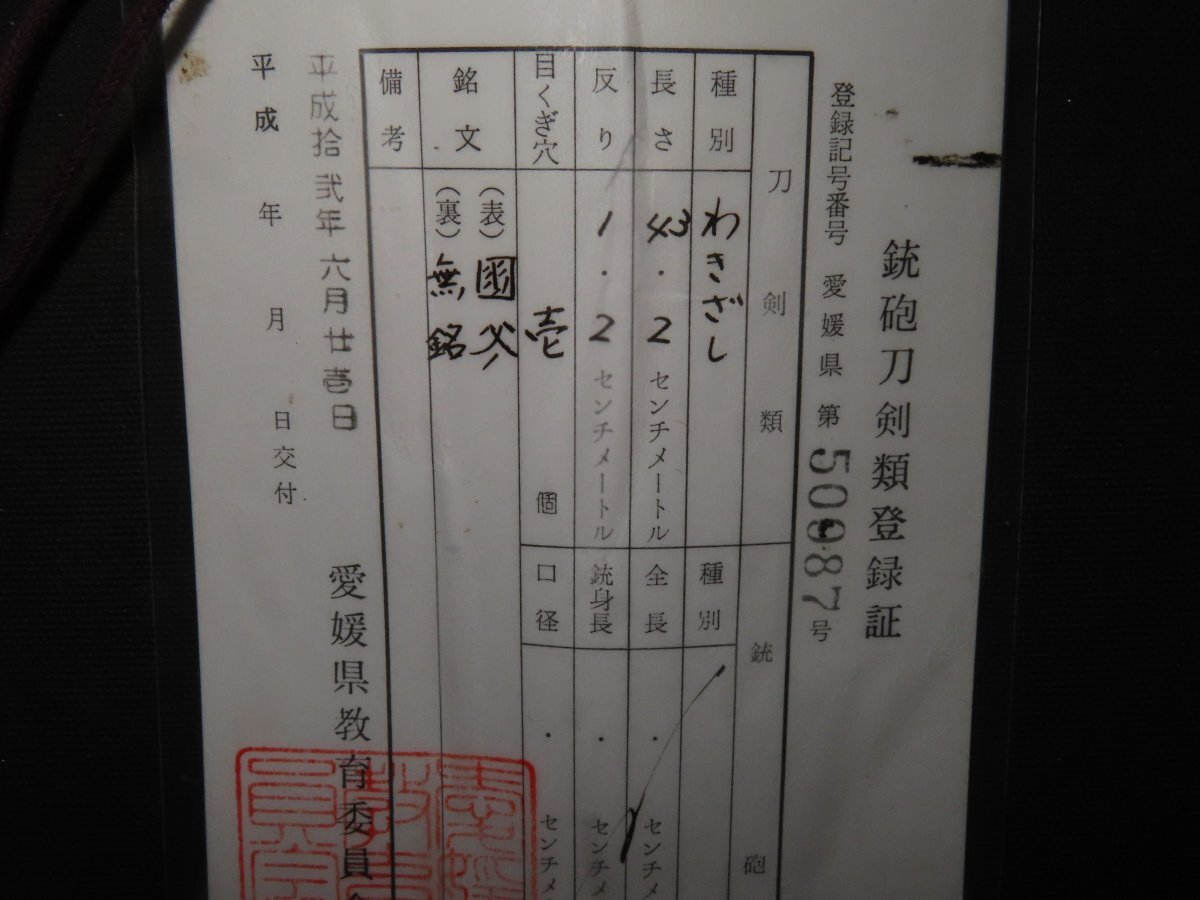 銃砲刀剣類登録証
登録記号番号 愛媛県 第50987号
刀剣類
種別 わきざし
長さ 43.2 センチメートル
反り 1.2 センチメートル
目くぎ穴 壱 個
銘文 (表)國
(裏)無銘
備考
銃砲
種別
全長 ・ センチメ
銃身長 ・ センチメ
口径 ・ センチメ
平成拾弐年六月廿壱日
平成 年 月 日交付
愛媛県教育委員会